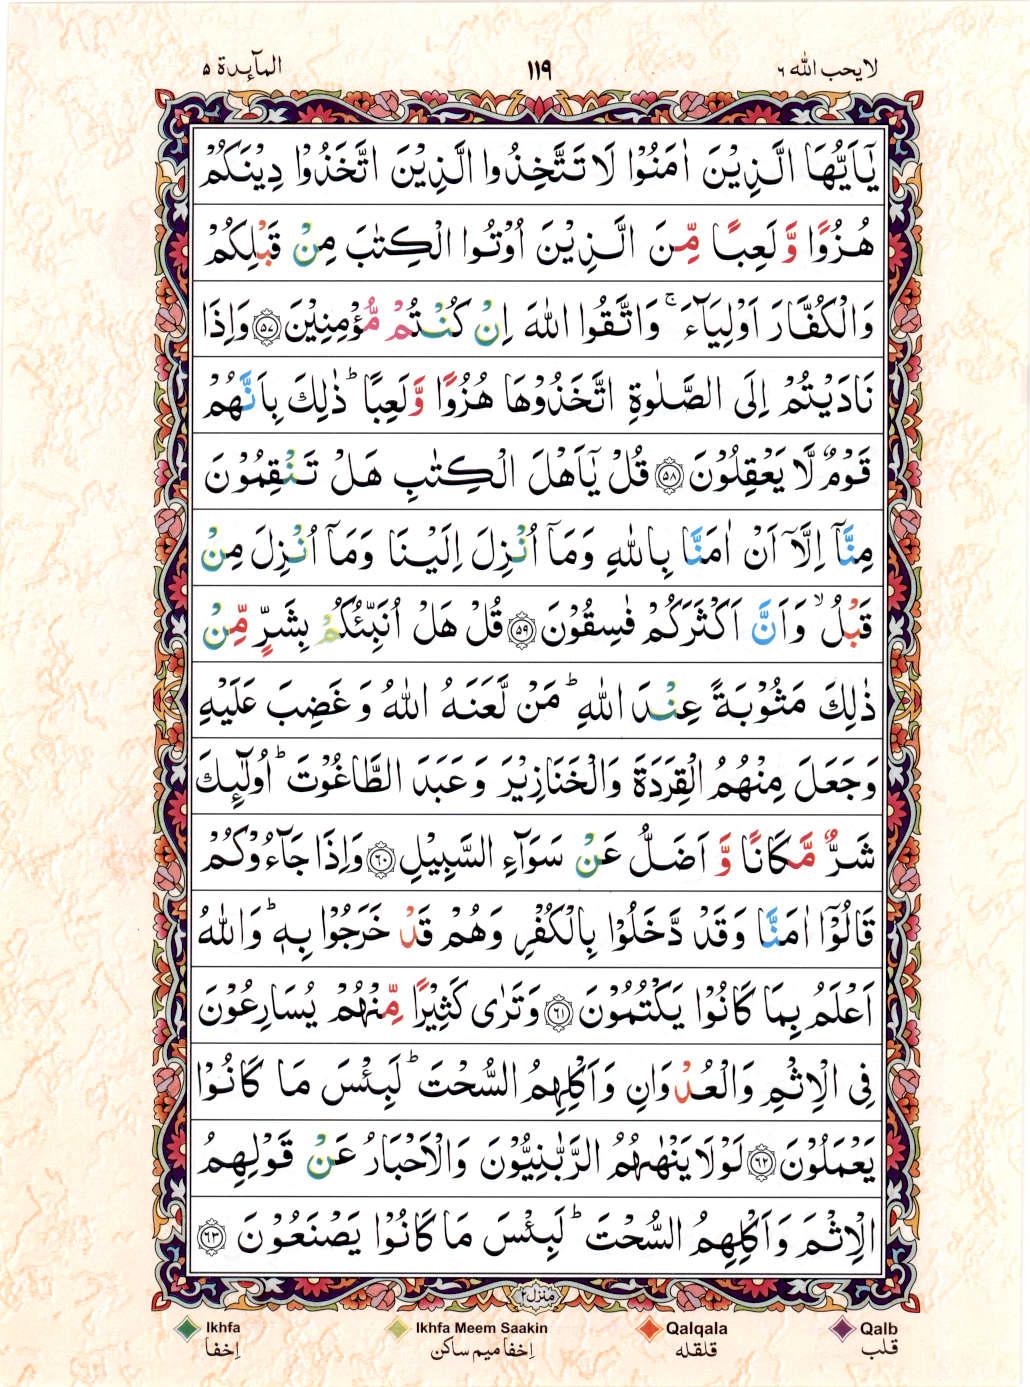 لايحب الله ٦ ١١٩ المآئدة ٥
يٰۤاَيُّهَا الَّذِيْنَ اٰمَنُوْا لَا تَتَّخِذُوا الَّذِيْنَ اتَّخَذُوْا دِيْنَكُمْ
هُزُوًا وَّ لَعِبًا مِّنَ الَّذِيْنَ اُوْتُوا الْكِتٰبَ مِنْ قَبْلِكُمْ
وَالْكُفَّارَ اَوْلِيَآءَ ۚ وَاتَّقُوا اللهَ اِنْ كُنْتُمْ مُّؤْمِنِيْنَ ﴿٥٧﴾ وَاِذَا
نَادَيْتُمْ اِلَى الصَّلٰوةِ اتَّخَذُوْهَا هُزُوًا وَّلَعِبًا ؕ ذٰلِكَ بِاَنَّهُمْ
قَوْمٌ لَّا يَعْقِلُوْنَ ﴿٥٨﴾ قُلْ يٰۤاَهْلَ الْكِتٰبِ هَلْ تَنْقِمُوْنَ
مِنَّاۤ اِلَّاۤ اَنْ اٰمَنَّا بِاللهِ وَمَاۤ اُنْزِلَ اِلَيْنَا وَمَاۤ اُنْزِلَ مِنْ
قَبْلُ ۙ وَاَنَّ اَكْثَرَكُمْ فٰسِقُوْنَ ﴿٥٩﴾ قُلْ هَلْ اُنَبِّئُكُمْ بِشَرٍّ مِّنْ
ذٰلِكَ مَثُوْبَةً عِنْدَ اللهِ ؕ مَنْ لَّعَنَهُ اللهُ وَ غَضِبَ عَلَيْهِ
وَجَعَلَ مِنْهُمُ الْقِرَدَةَ وَالْخَنَازِيْرَ وَعَبَدَ الطَّاغُوْتَ ؕ اُولٰٓئِكَ
شَرٌّ مَّكَانًا وَّ اَضَلُّ عَنْ سَوَآءِ السَّبِيْلِ ﴿٦٠﴾ وَاِذَا جَآءُوْكُمْ
قَالُوْۤا اٰمَنَّا وَقَدْ دَّخَلُوْا بِالْكُفْرِ وَهُمْ قَدْ خَرَجُوْا بِهٖ ؕ وَاللهُ
اَعْلَمُ بِمَا كَانُوْا يَكْتُمُوْنَ ﴿٦١﴾ وَتَرٰى كَثِيْرًا مِّنْهُمْ يُسَارِعُوْنَ
فِى الْاِثْمِ وَالْعُدْوَانِ وَاَكْلِهِمُ السُّحْتَ ؕ لَبِئْسَ مَا كَانُوْا
يَعْمَلُوْنَ ﴿٦٢﴾ لَوْلَا يَنْهٰىهُمُ الرَّبّٰنِيُّوْنَ وَالْاَحْبَارُ عَنْ قَوْلِهِمُ
الْاِثْمَ وَاَكْلِهِمُ السُّحْتَ ؕ لَبِئْسَ مَا كَانُوْا يَصْنَعُوْنَ ﴿٦٣﴾
منزل ٢
Ikhfa Ikhfa Meem Saakin Qalqala Qalb
اِخفا اِخفا ميم ساكن قلقله قلب